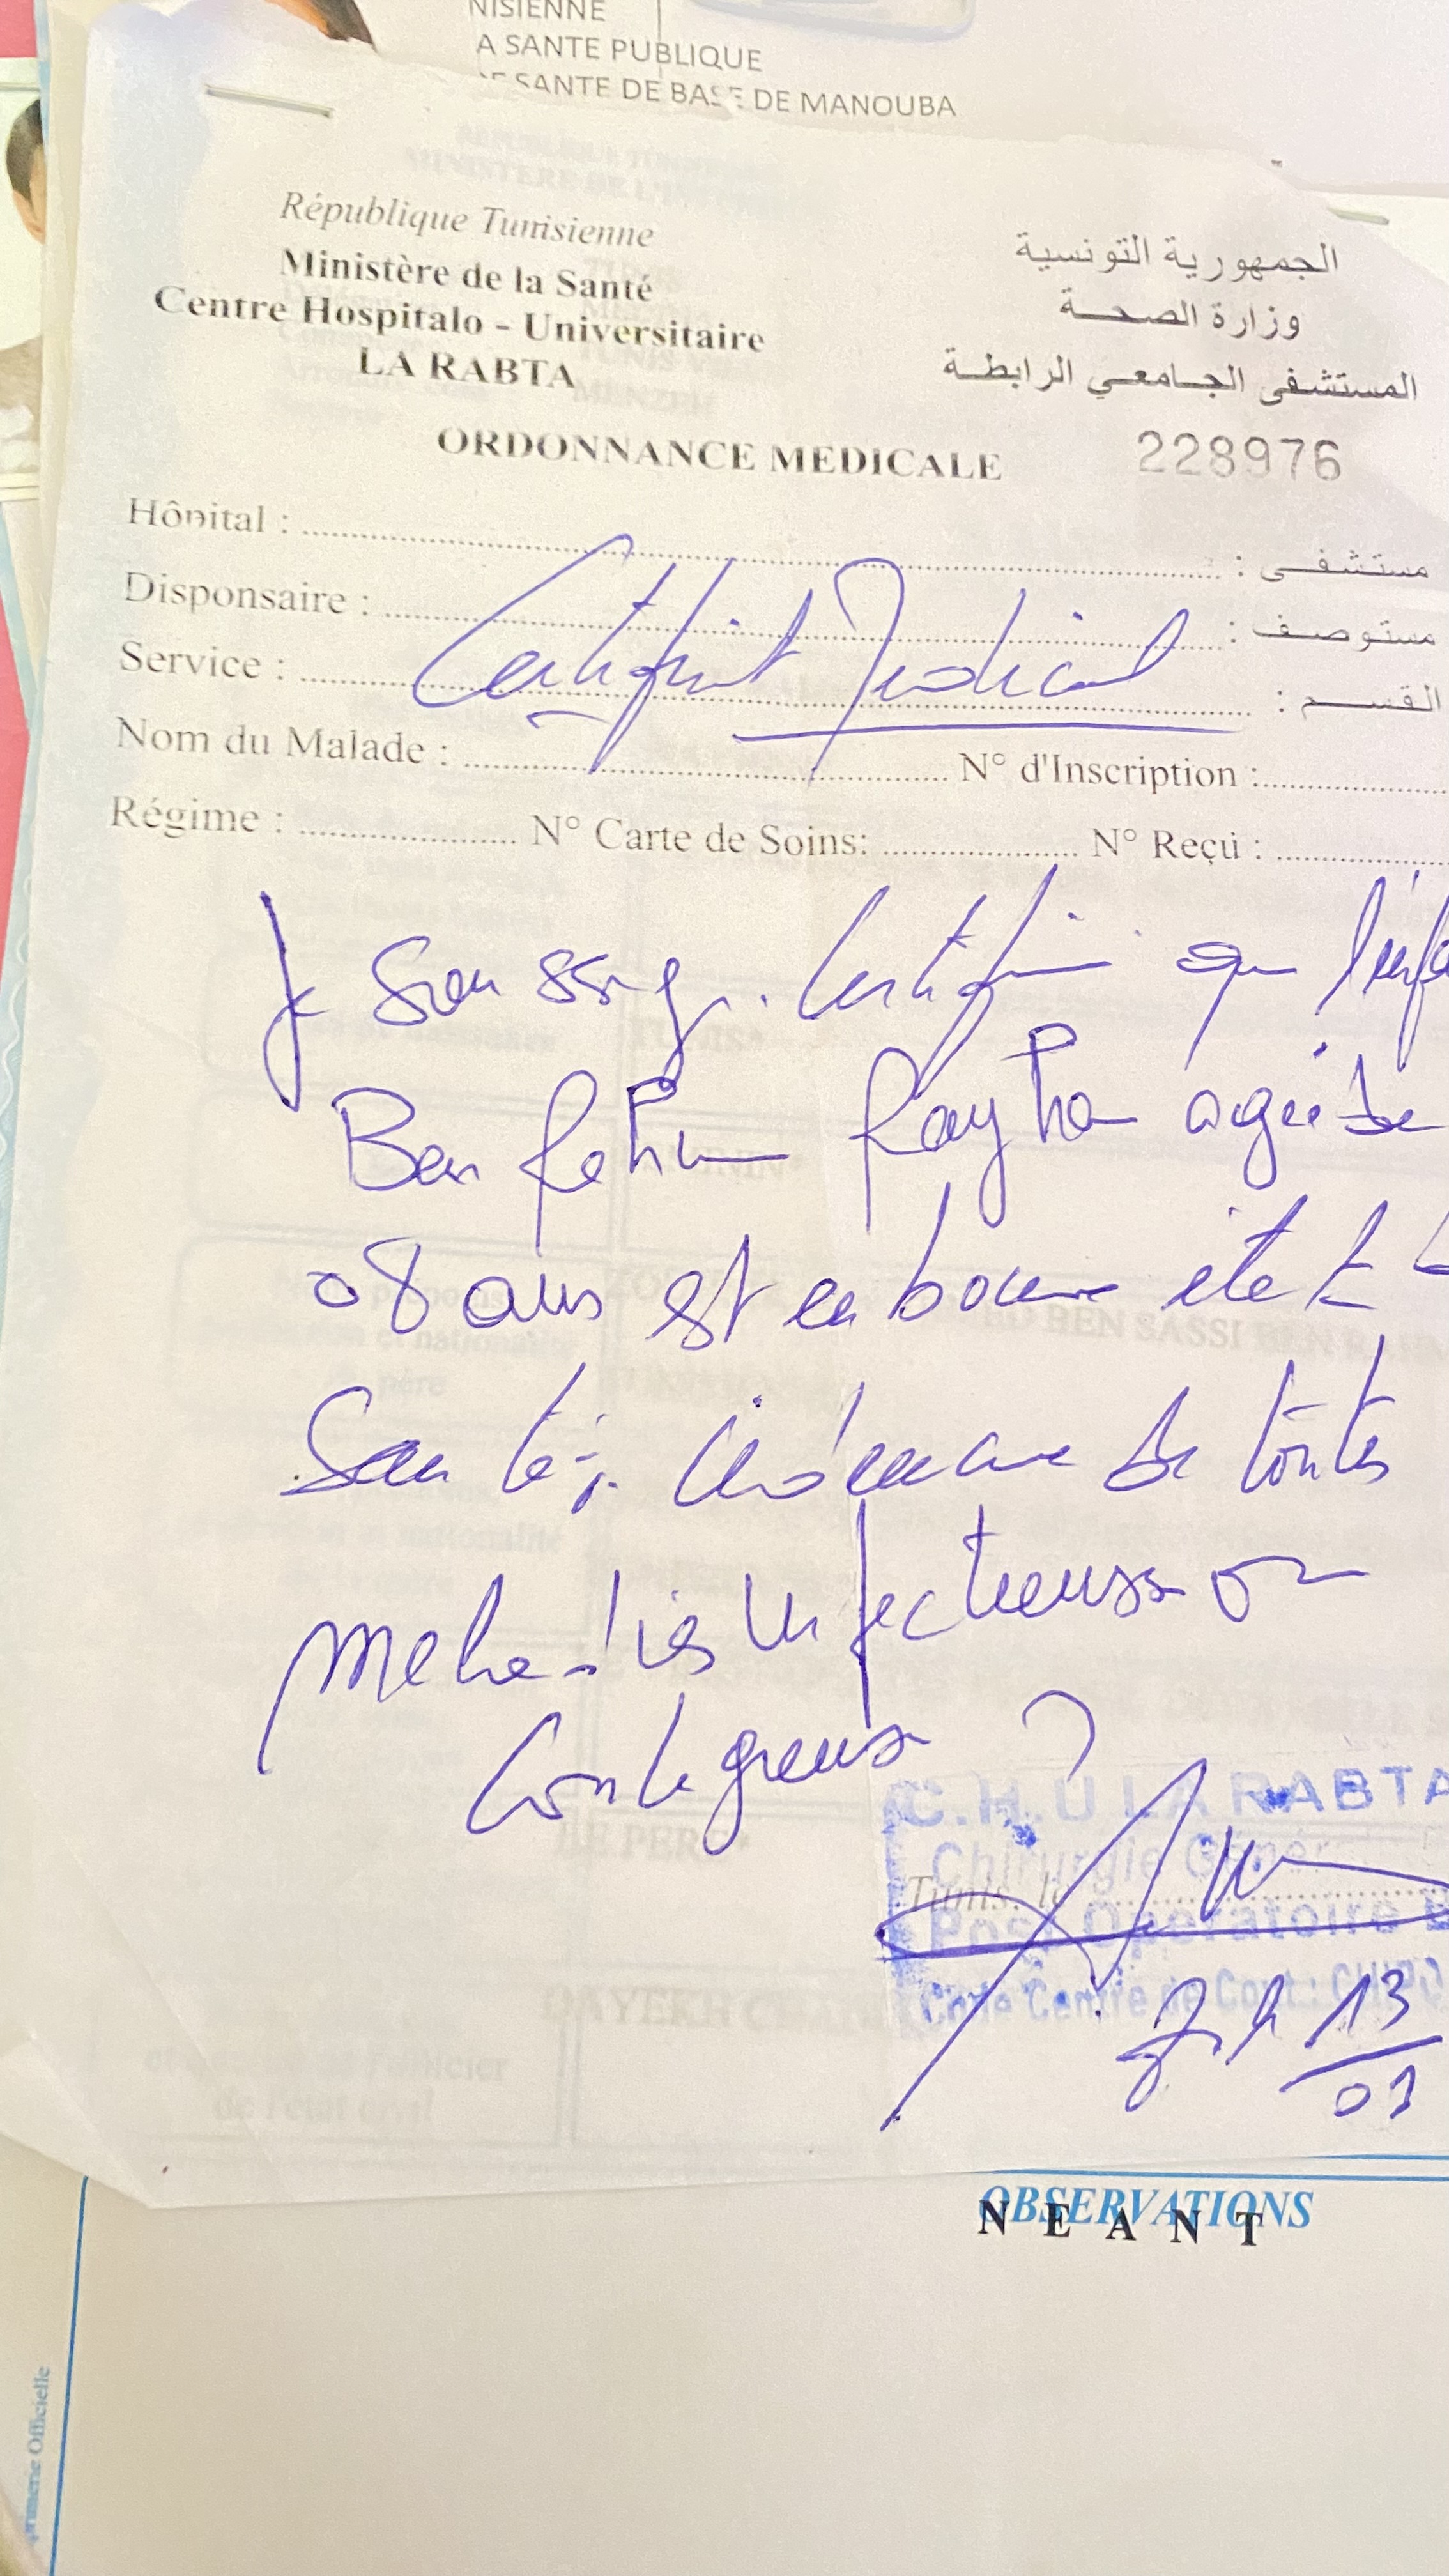 NISIENNE
A SANTE PUBLIQUE
DE SANTE DE BASE DE MANOUBA
République Tunisienne
الجمهورية التونسية
Ministère de la Santé
وزارة الصحة
Centre Hospitalo - Universitaire
LA RABTA
المستشفى الجامعي الرابطة
ORDONNANCE MEDICALE 228976
Hôpital : مستشفى :
Disponsaire : مستوصف :
Certificat Medical
Service : القسم :
Nom du Malade : N° d'Inscription :
Régime : N° Carte de Soins: N° Reçu :
Je soussigné certifie que l'enfa
Ben Rayhan agée de
08 ans est en bonne état
Santé; indemne de toutes
maladies infectieuses ou
contagieuse
C.H.U LA RABTA
Chirurgie Génér
Tunis. le
Post Opératoire B
Code Centre de Cout :
13
03
OBSERVATIONS
NEANT
rimerie Officielle